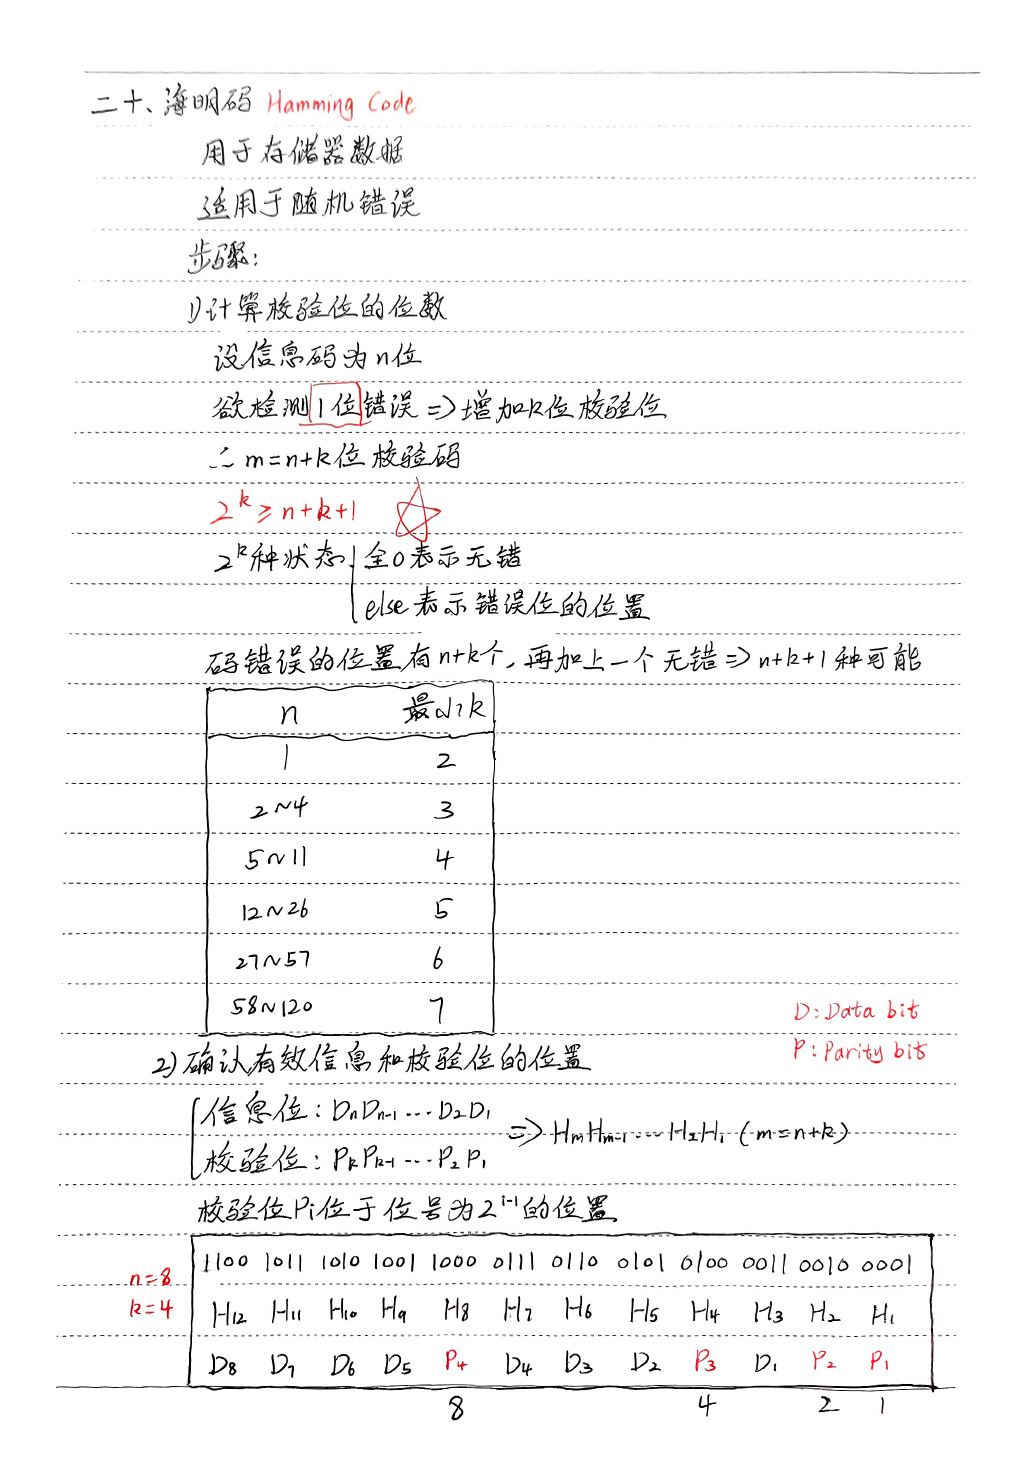 二十、海明码 Hamming Code
用于存储器数据
适用于随机错误
步骤:
1)计算校验位的位数
设信息码为n位
欲检测1位错误 => 增加k位校验位
∴ m=n+k位校验码
2^k ≥ n+k+1 ☆
2^k种状态 { 全0表示无错
else表示错误位的位置
码错误的位置有n+k个, 再加上一个无错 => n+k+1种可能
n 最小k
1 2
2~4 3
5~11 4
12~26 5
27~57 6
58~120 7
D: Data bit
P: Parity bit
2)确认有效信息和校验位的位置
信息位: DnDn-1 ··· D2D1
=> HmHm-1 ··· H2H1 (m=n+k)
校验位: PkPk-1 ··· P2P1
校验位Pi位于位号为2^i-1的位置
1100 1011 1010 1001 1000 0111 0110 0101 0100 0011 0010 0001
n=8
k=4
H12 H11 H10 H9 H8 H7 H6 H5 H4 H3 H2 H1
D8 D7 D6 D5 P4 D4 D3 D2 P3 D1 P2 P1
8 4 2 1